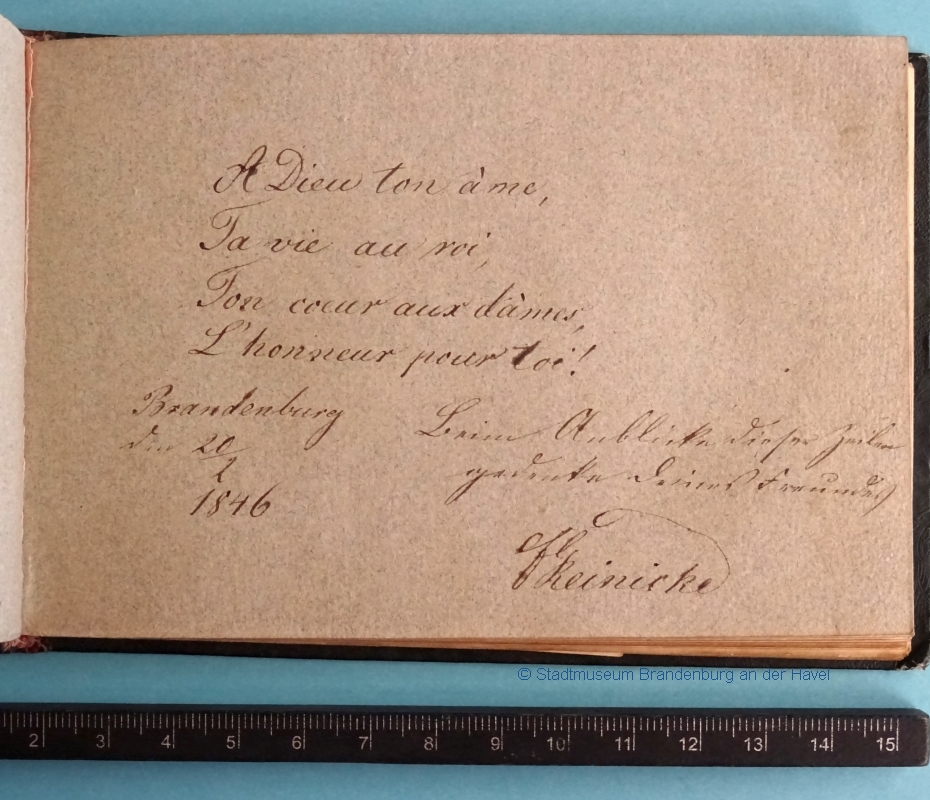 A Dieu ton àme,
Ta vie au roi,
Ton coeur aux dàmes,
L'honneur pour toi!
Brandenburg
den 20/2
1846
Beim Anblicke dieser Zeilen
gedenke Deines Freundes
© Stadtmuseum Brandenburg an der Havel
2 3 4 5 6 7 8 9 10 11 12 13 14 15